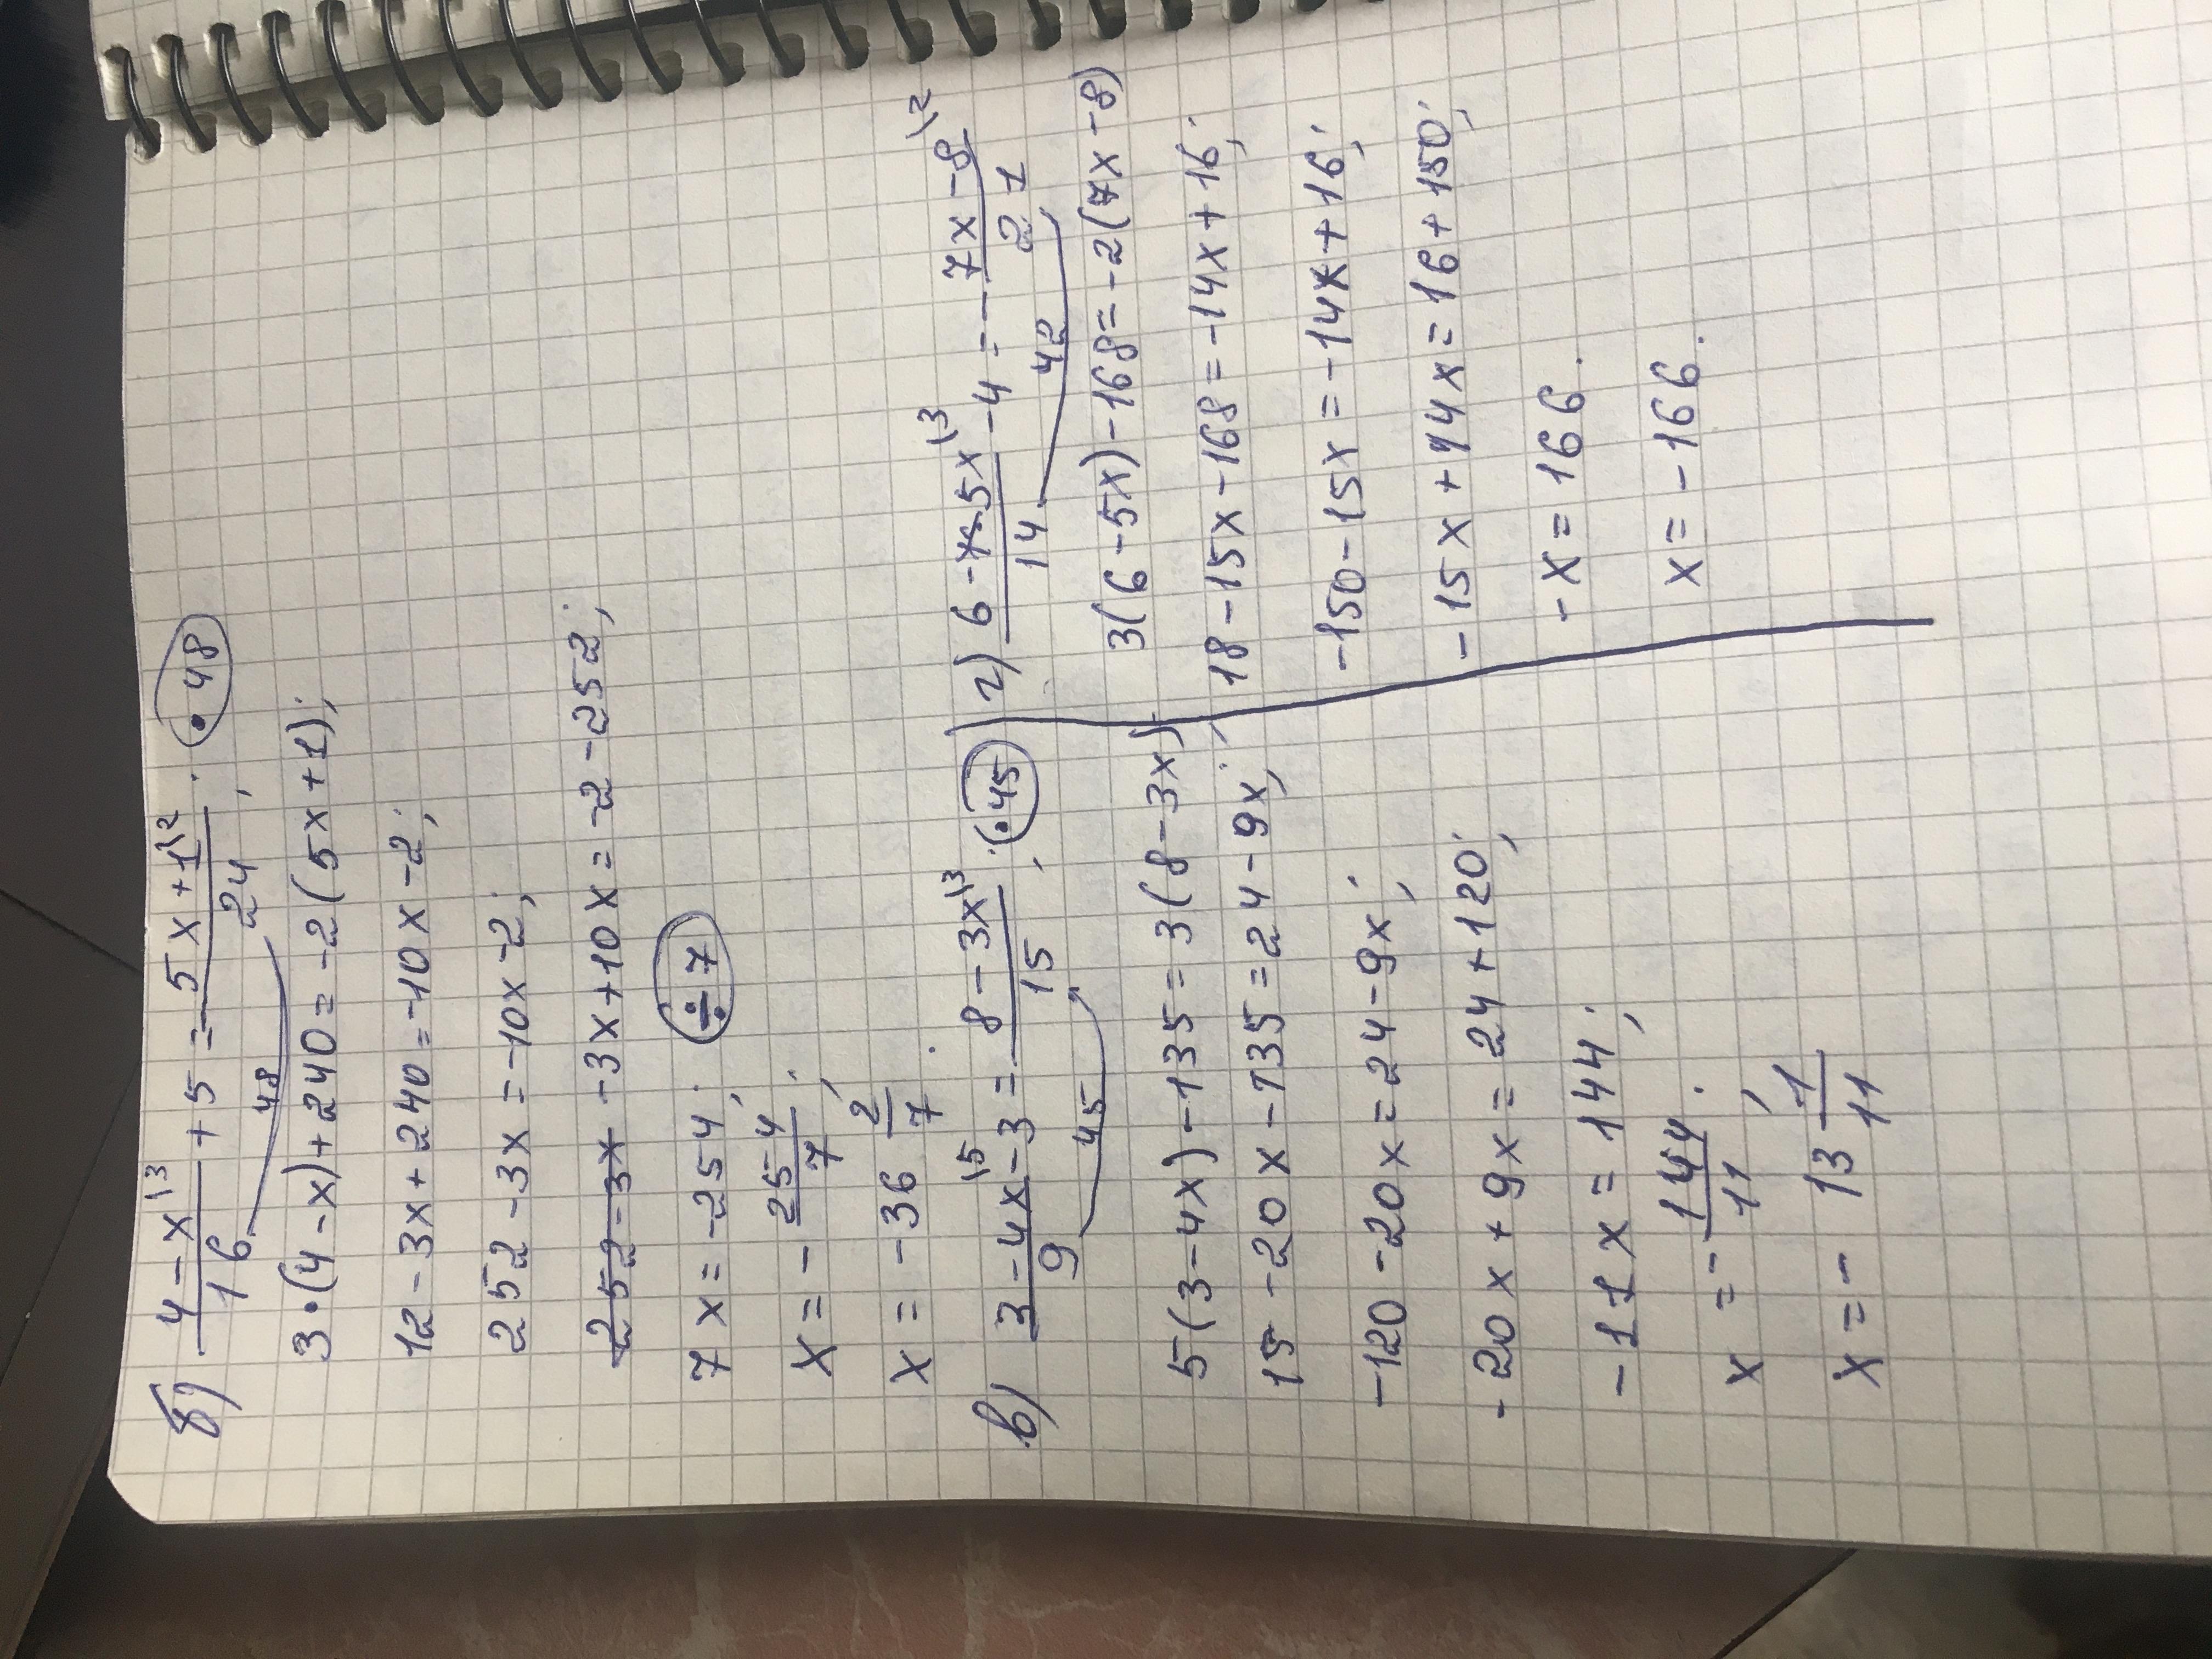 б) (4-x\3)/16 + 5 = -(5x+1\2)/24; (·48)
48
3·(4-x)+240=-2(5x+1);
12-3x+240=-10x-2;
252-3x=-10x-2;
-3x+10x=-2-252;
7x=-254; (÷7)
x=-254/7;
x=-36 2/7.
в) (3-4x\5)/9 -3= (8-3x\3)/15; (·45)
45
5(3-4x)-135=3(8-3x)
15-20x-135=24-9x;
-120-20x=24-9x;
-20x+9x=24+120;
-11x=144;
x=-144/11;
x=-13 1/11
г) (6-5x\3)/14 -4=-(7x-8\2)/21
42
3(6-5x)-168=-2(7x-8)
18-15x-168=-14x+16;
-150-15x=-14x+16;
-15x+14x=16+150;
-x=166.
x=-166.